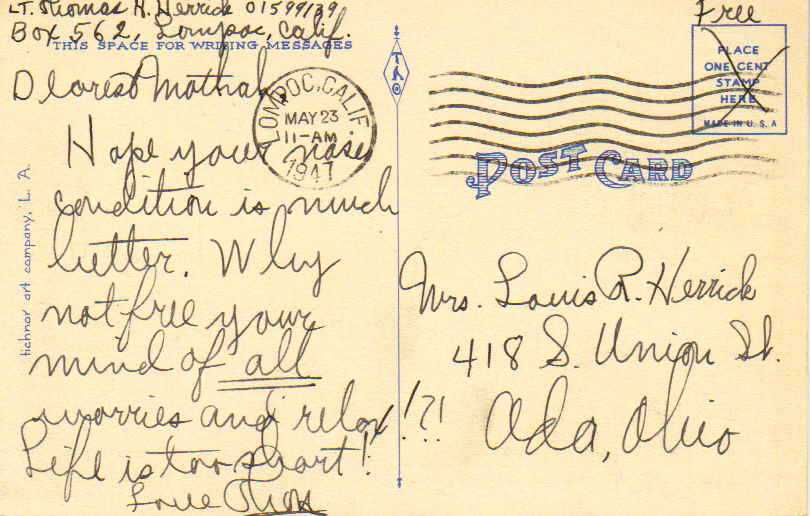 LT. Thomas R. Herrick 01599139
Box 562, Lompoc, Calif.
THIS SPACE FOR WRITING MESSAGES
Dearest Mothah
Hope your nose
condition is much
better. Why
not free your
mind of all
worries and relax!?!
Life is too short!
Love Thos
tichnor art company, L. A.
LOMPOC, CALIF.
MAY 23
11-AM
1947
Free
PLACE
ONE CENT
STAMP
HERE
MADE IN U. S. A
POST CARD
Mrs. Louis R. Herrick
418 S. Union St.
Ada, Ohio